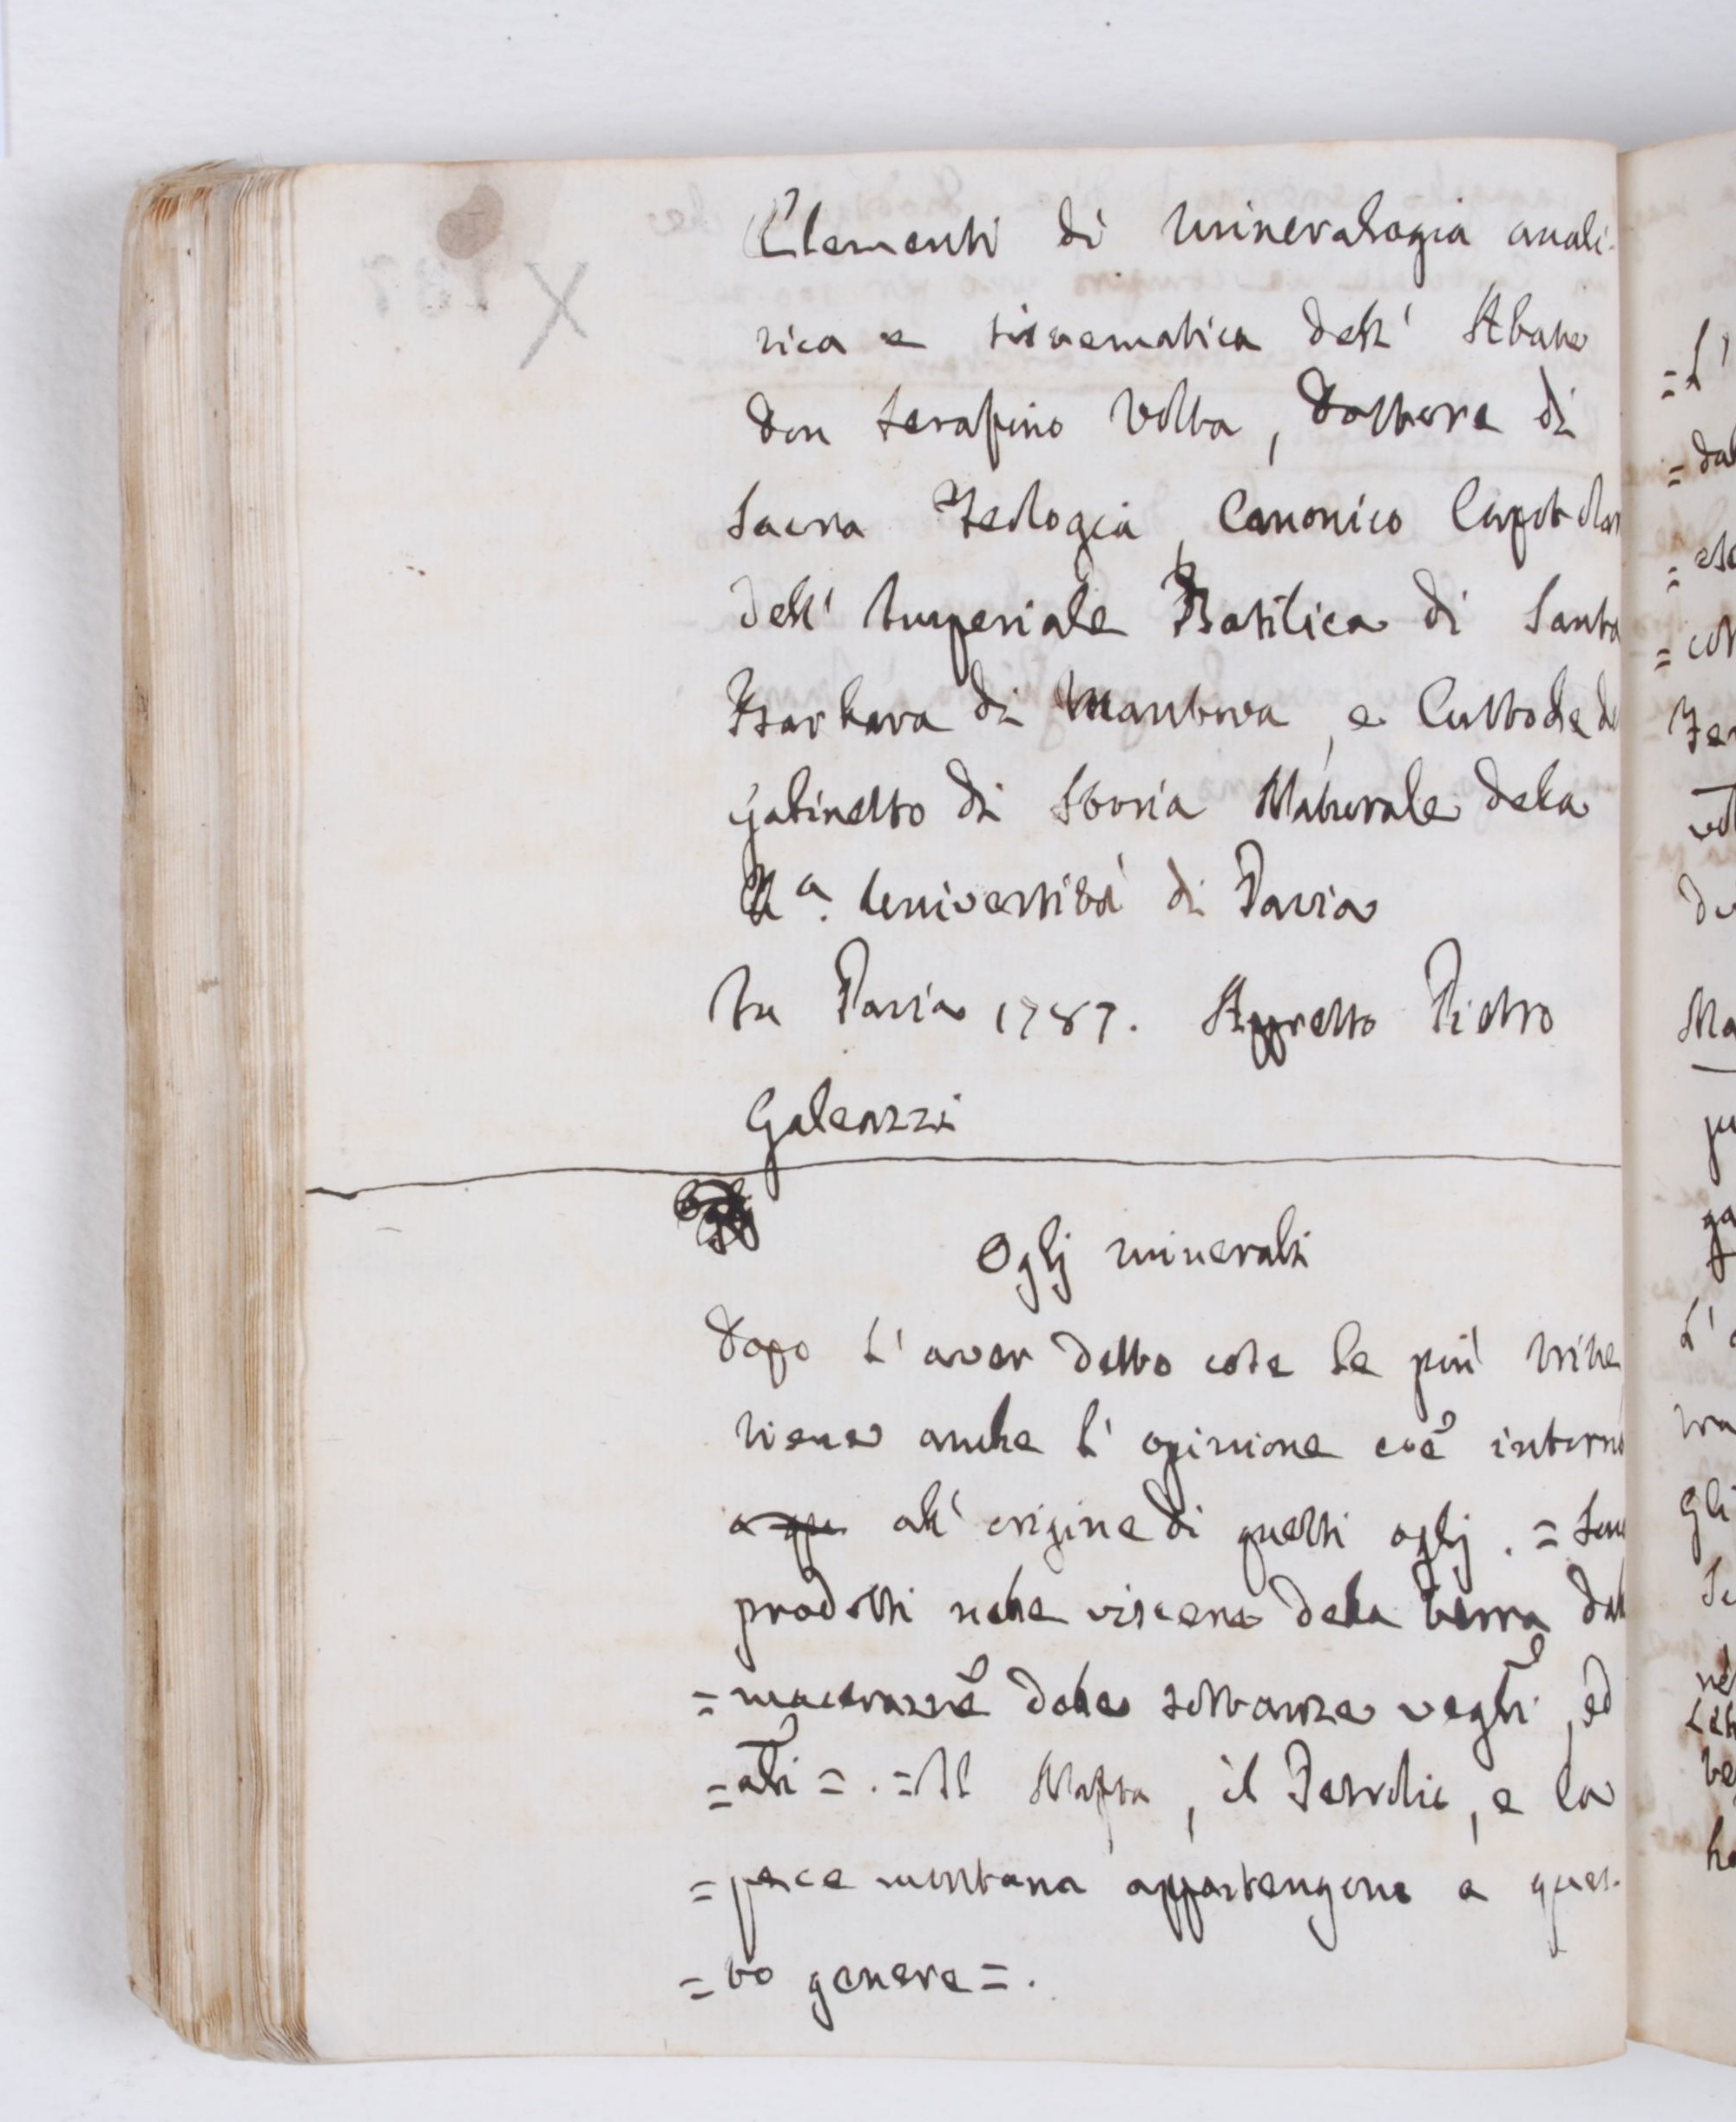 Elementi di mineralogia anali-
tica e sistematica dell' Abate
Don Serafino Volta, Dottore di
Sacra Teologia, Canonico Capitolar
dell' Imperiale Basilica di Santa
Barbara di Mantova, e Custode de
Gabinetto di Storia Naturale della
Rª. Università di Pavia
In Pavia 1787. Appresso Pietro
Galeazzi
Oglj minerali
Dopo l' aver detto cose le più trite
tiene anche l' opinione coè intorno
all' origine di questi oglj. = Sono
prodotti nelle viscere della terra dall
= macerazñe delle sostanze vegli, ed
= ali = . = Il Nafta, il Petrolio, e la
= pece montana appartengono a ques-
= to genere = .